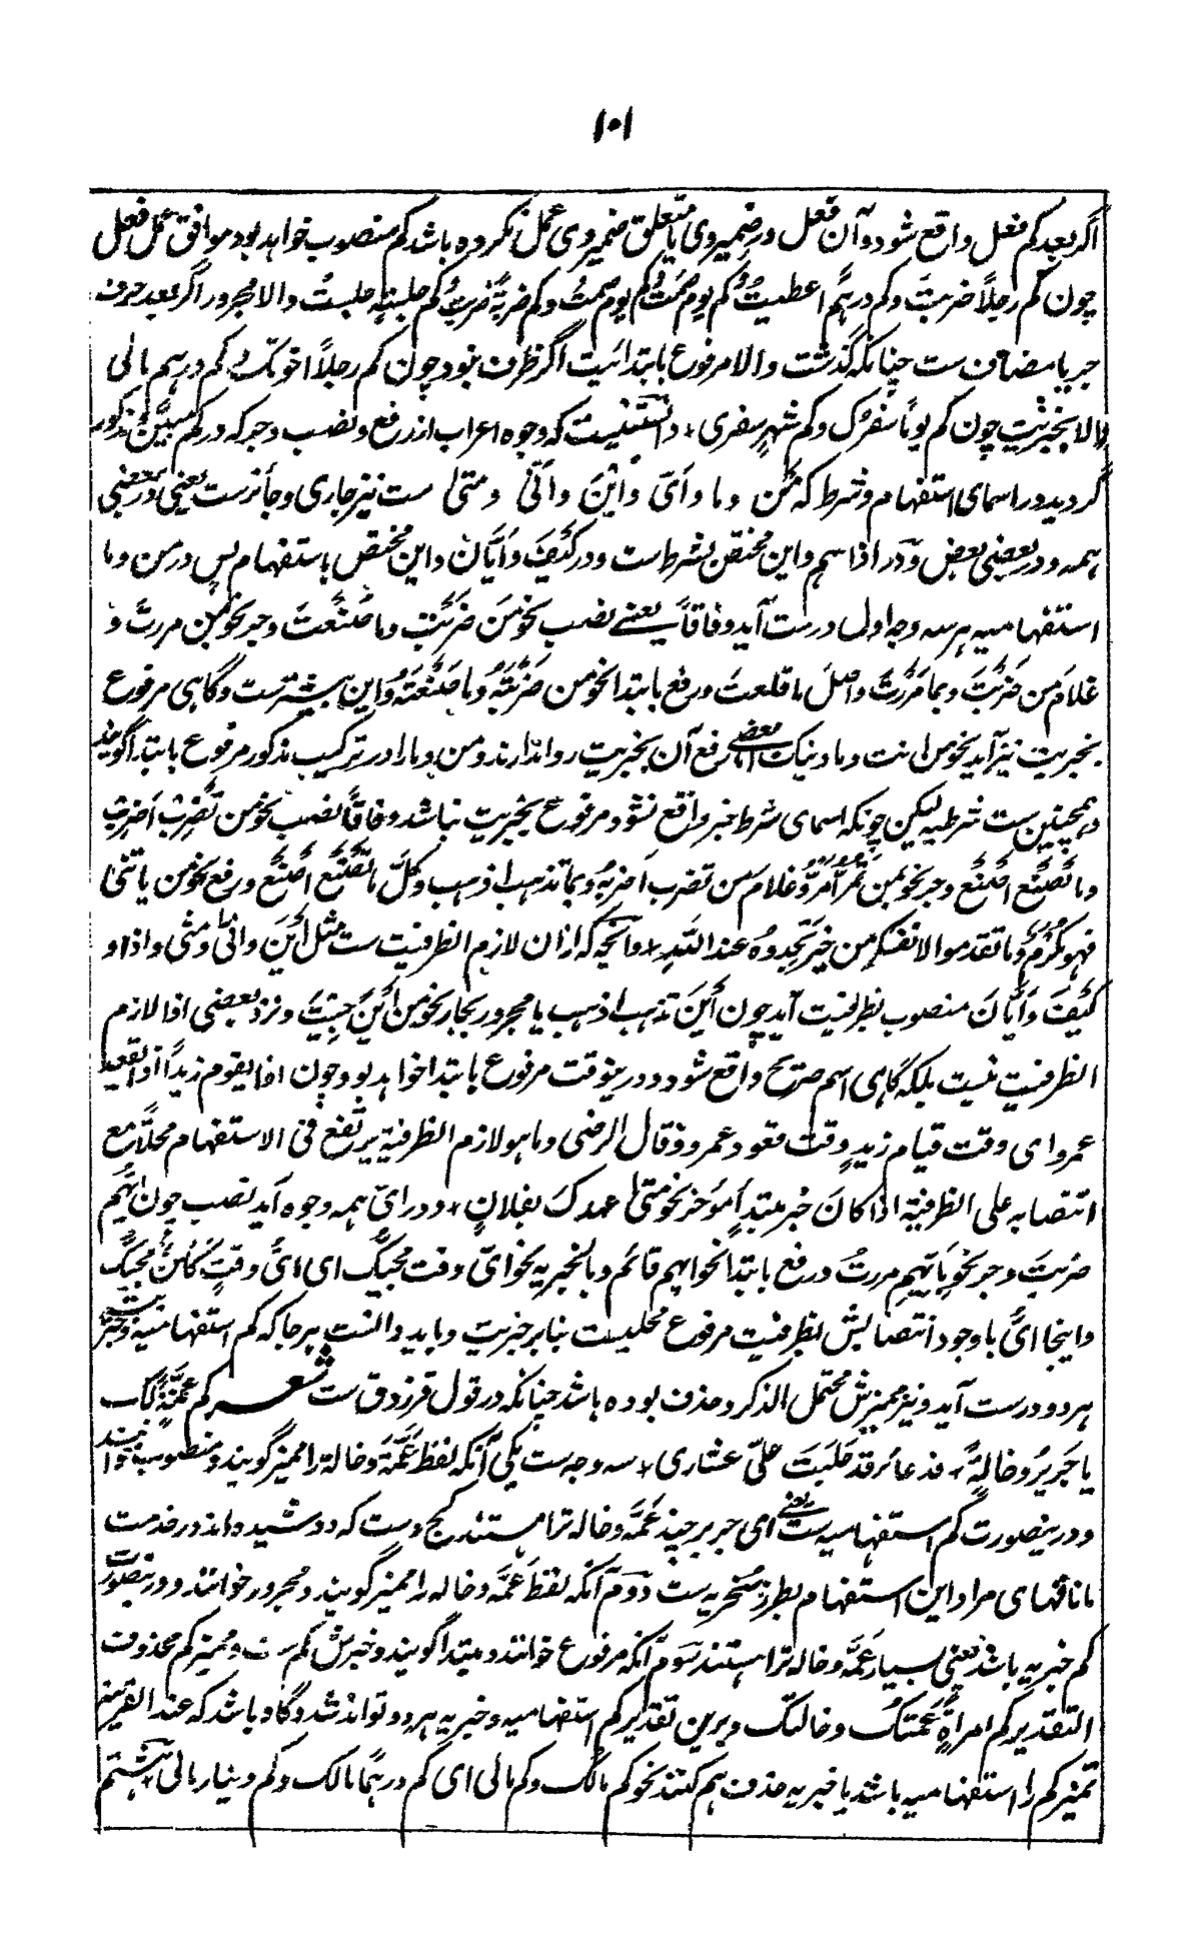 ١٠١
اگر بعد کم فعل واقع شود و آن فعل در ضمیر وی یا متعلق ضمیر وی عمل نکرده باشد کم منصوب خواهد بود موافق عمل فعل
چون کم رجلاً ضربتَ و کم درهمٍ اعطیتُ و کم یومٍ صمتُ و کم یومٍ صمتُ و کم ضربةً ضربتُ کم جلسةٍ جلستُ والا مجرور اگر بعد حرف
جر یا مضاف ست چنانکه گذشت والا مرفوع بابتدائیت اگر ظرف نبود چون کم رجلاً اخوتک و کم درهم مالی
والا بخبریت چون کم یوماً سفرک و کم شهرٍ سفری، دانستنیست که وجوه اعراب از رفع و نصب و جر که در کم مبیّن و مذکور
گردید در اسمای استفهام و شرط که مَن و ما و اَیّ و اَینَ و اَنّیٰ و متیٰ ست نیز جاری و جائزست یعنی در بعضی
همه و در بعضی بعض و در اذا سم و این مختص بشرط ست و در کَیفَ و اَیّان و این مختص باستفهام پس در من و ما
استفهامیه هر سه وجه اول درست آید وفاقاً یعنے نصب نحو مَن ضربتَ و ما صنعتَ و جر نحو بمن مررتَ و
غلامَ من ضربتَ و بما مررتَ و اصلَ ما قلعتَ و رفع بابتدا نحو من ضربتَه و ما صنعتَه و این بیشترست و گاهی مرفوع
بخبریت نیز آید نحو من انت و ما دینک اما بعضے رفع آن بخبریت روا ندارند و من و ما را در ترکیب مذکور مرفوع بابتدا گویند
و همچنین ست شرطیه لیکن چونکه اسمای شرط خبر واقع نشود مرفوع بخبریت نباشد وفاقاً نصب نحو من تضربْ اضربْ
و ما تصنَع اصنَع و جر نحو بمن تمرر امرر و غلام من تضرب اضربه و بما تذهب اذهب و کلّ ما تصنع اصنع و رفع نحو من یاتنی
فهو مکرم و ما تقدموا لانفسکم من خیر تجدوه عند الله، و آنچه که از آن لازم الظرفیت ست مثل اَینَ و انّی و متی و اذا و
کَیفَ و اَیّانَ منصوب بظرفیت آید چون اَینَ تذهب اذهب یا مجرور بجار نحو من اَینَ جئتَ و نزد بعضی اذا لازم
الظرفیت نیست بلکه گاهی اسم صریح واقع شود و درینوقت مرفوع بابتدا خواهد بود چون اذا یقوم زید اذا یقعد
عمرو ای وقت قیام زیدٍ وقت قعود عمرو و قال الرضی و ما هو لازم الظرفیة یرتفع فی الاستفهام محلاً مع
انتصابه علی الظرفیة اذا کانَ خبر مبتدأٍ مؤخر نحو متیٰ عهدک بفلانٍ، و در ایّ همه وجوه آید نصب چون ایّهم
ضربتَ و جر نحو بایّهم مررتُ و رفع بابتدا نحو ایهم قائم و بالخبریه نحو ایّ وقت مجیئک ای ایُّ وقتٍ کائنٌ مجیئک
و اینجا ایُّ با وجود انتصابش بظرفیت مرفوع محلیست بنابر خبریت و باید دانست هر جا که کم استفهامیه و خبریه
هر دو درست آید و نیز ممیزش محتمل الذکر و حذف بوده باشد چنانکه در قول فرزدق ست شعر کم عمّةٍ لک
یا جریرُ و خالةٍ، فدعاءَ قد حلبت علیّ عشاری، سه وجه ست یکی آنکه لفظ عمَّة و خالة را ممیز گویند و منصوب خوانند
و درینصورت کم استفهامیه ست یعنے ای جریر چند عمَّه و خاله ترا هستند کج دست که دوشیده اند در خدمت
ما ناقهای مرا و این استفهام بطرز سخریه ست دوم آنکه لفظ عمَّه و خاله را ممیز گویند و مجرور خوانند و درینصورت
کم خبریه باشد یعنی بسیار عمَّه و خاله ترا هستند سوم آنکه مرفوع خوانند و مبتدا گویند و خبرش کم ست و ممیز کم محذوف
التقدیر کم امرأةٍ عمتک و خالتک و برین تقدیر کم استفهامیه و خبریه هر دو تواند شد و گاه باشد که عند القرینه
تمیز کم را استفهامیه باشد یا خبریه حذف هم کنند نحو کم مالک و کم مالی ای کم درهمًا مالک و کم دینار مالی، هشتم